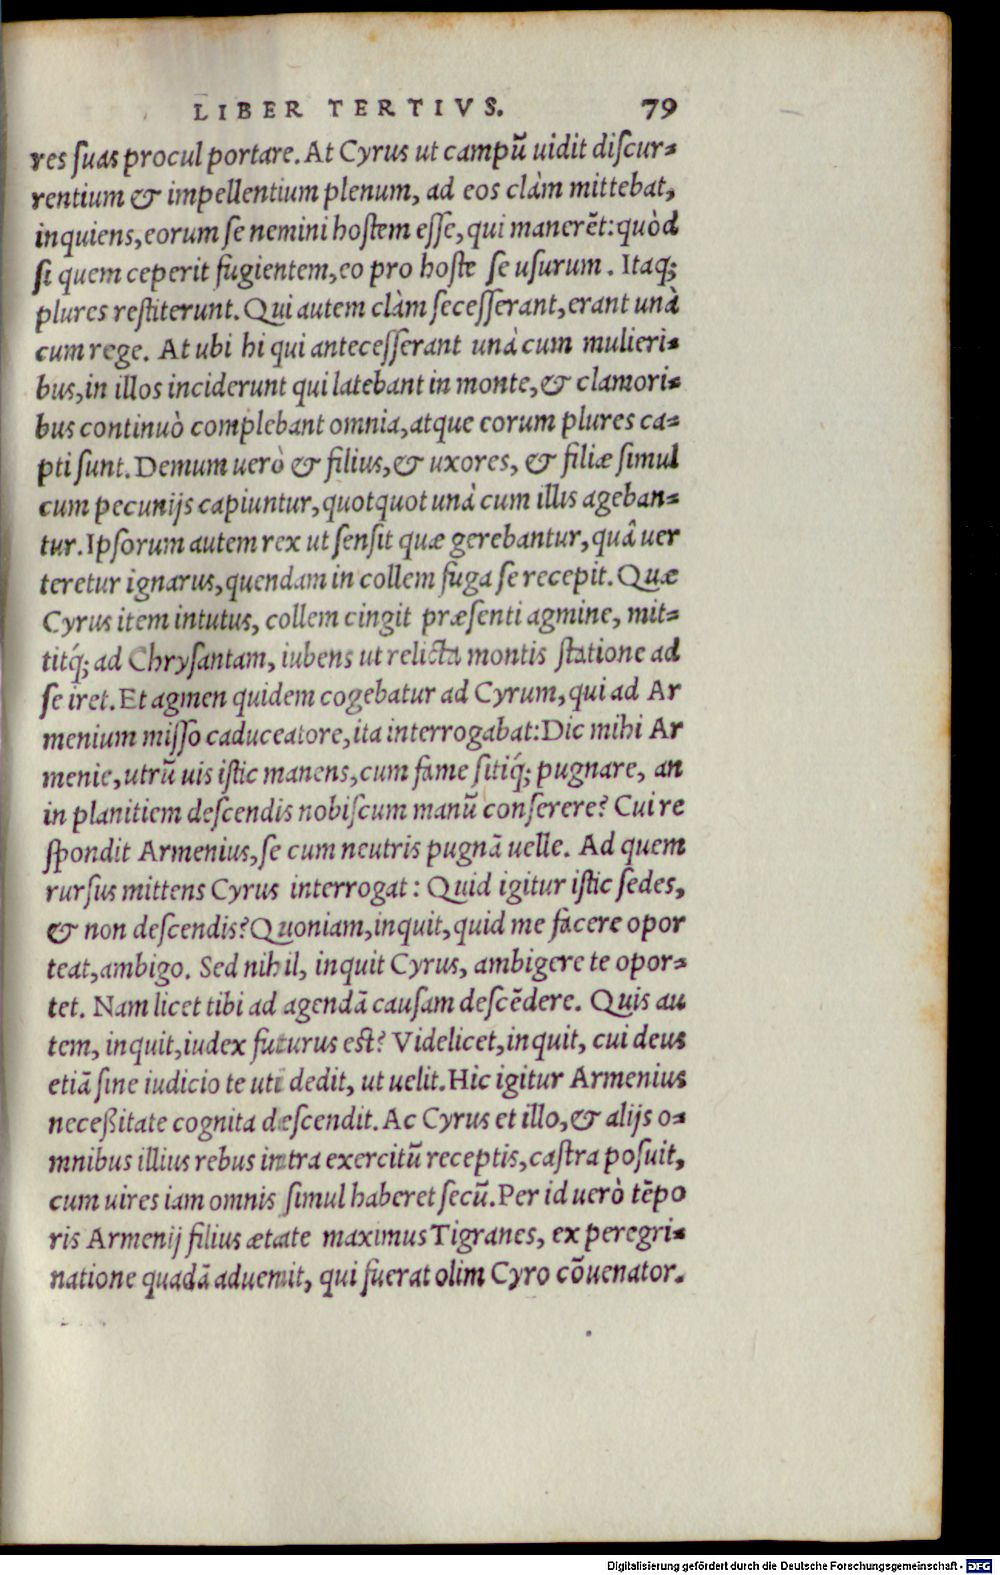 LIBER TERTIVS. 79
res suas procul portare. At Cyrus ut campũ uidit discur-
rentium & impellentium plenum, ad eos clàm mittebat,
inquiens, eorum se nemini hostem esse, qui manerẽt: quòd
si quem ceperit fugientem, eo pro hoste se usurum. Itaq;
plures restiterunt. Qui autem clàm secesserant, erant unà
cum rege. At ubi hi qui antecesserant unà cum mulieri-
bus, in illos inciderunt qui latebant in monte, & clamori-
bus continuò complebant omnia, atque eorum plures ca-
pti sunt. Demum uerò & filius, & uxores, & filiæ simul
cum pecunijs capiuntur, quotquot unà cum illis ageban-
tur. Ipsorum autem rex ut sensit quæ gerebantur, quâ uer
teretur ignarus, quendam in collem fuga se recepit. Quæ
Cyrus item intutus, collem cingit præsenti agmine, mit-
titq́; ad Chrysantam, iubens ut relicta montis statione ad
se iret. Et agmen quidem cogebatur ad Cyrum, qui ad Ar
menium misso caduceatore, ita interrogabat: Dic mihi Ar
menie, utrũ uis istic manens, cum fame sitiq́; pugnare, an
in planitiem descendis nobiscum manũ conserere? Cui re
spondit Armenius, se cum neutris pugnã uelle. Ad quem
rursus mittens Cyrus interrogat: Quid igitur istic sedes,
& non descendis? Quoniam, inquit, quid me facere opor
teat, ambigo. Sed nihil, inquit Cyrus, ambigere te opor-
tet. Nam licet tibi ad agendã causam descẽdere. Quis au
tem, inquit, iudex futurus est? Videlicet, inquit, cui deus
etiã sine iudicio te uti dedit, ut uelit. Hic igitur Armenius
neceßitate cognita descendit. Ac Cyrus et illo, & alijs o-
mnibus illius rebus intra exercitũ receptis, castra posuit,
cum uires iam omnis simul haberet secũ. Per id uerò tẽpo
ris Armenij filius ætate maximus Tigranes, ex peregri-
natione quadã aduenit, qui fuerat olim Cyro cõuenator.
Digitalisierung gefördert durch die Deutsche Forschungsgemeinschaft - DFG